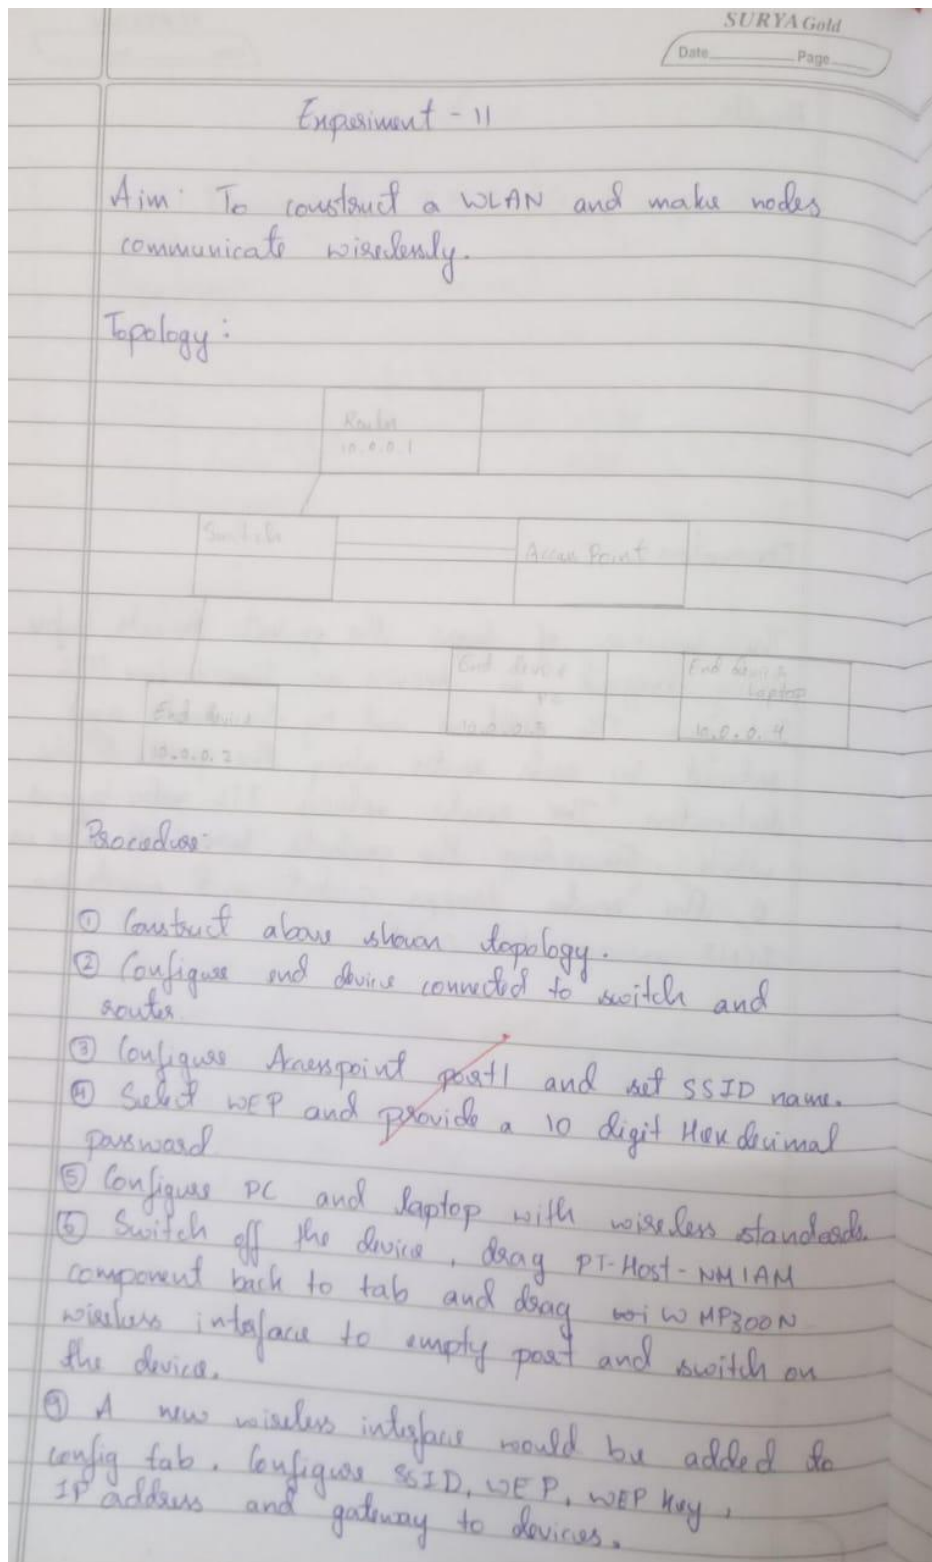 SURYA Gold
Date Page
Experiment - 11
Aim: To construct a WLAN and make nodes
communicate wirelessly.
Topology:
Router
10.0.0.1
Switch
Access Point
End device
End device
Laptop
10.0.0.3
10.0.0.4
End device
10.0.0.2
Procedure:
① Construct above shown topology.
② Configure end device connected to switch and
router
③ Configure Accesspoint port1 and set SSID name.
④ Select WEP and provide a 10 digit Hex decimal
password
⑤ Configure PC and laptop with wireless standards.
⑥ Switch off the device, drag PT-Host-NM1AM
component back to tab and drag WMP300N
wireless interface to empty port and switch on
the device.
⑦ A new wireless interface would be added to
config tab. Configure SSID, WEP, WEP Key,
IP address and gateway to devices.